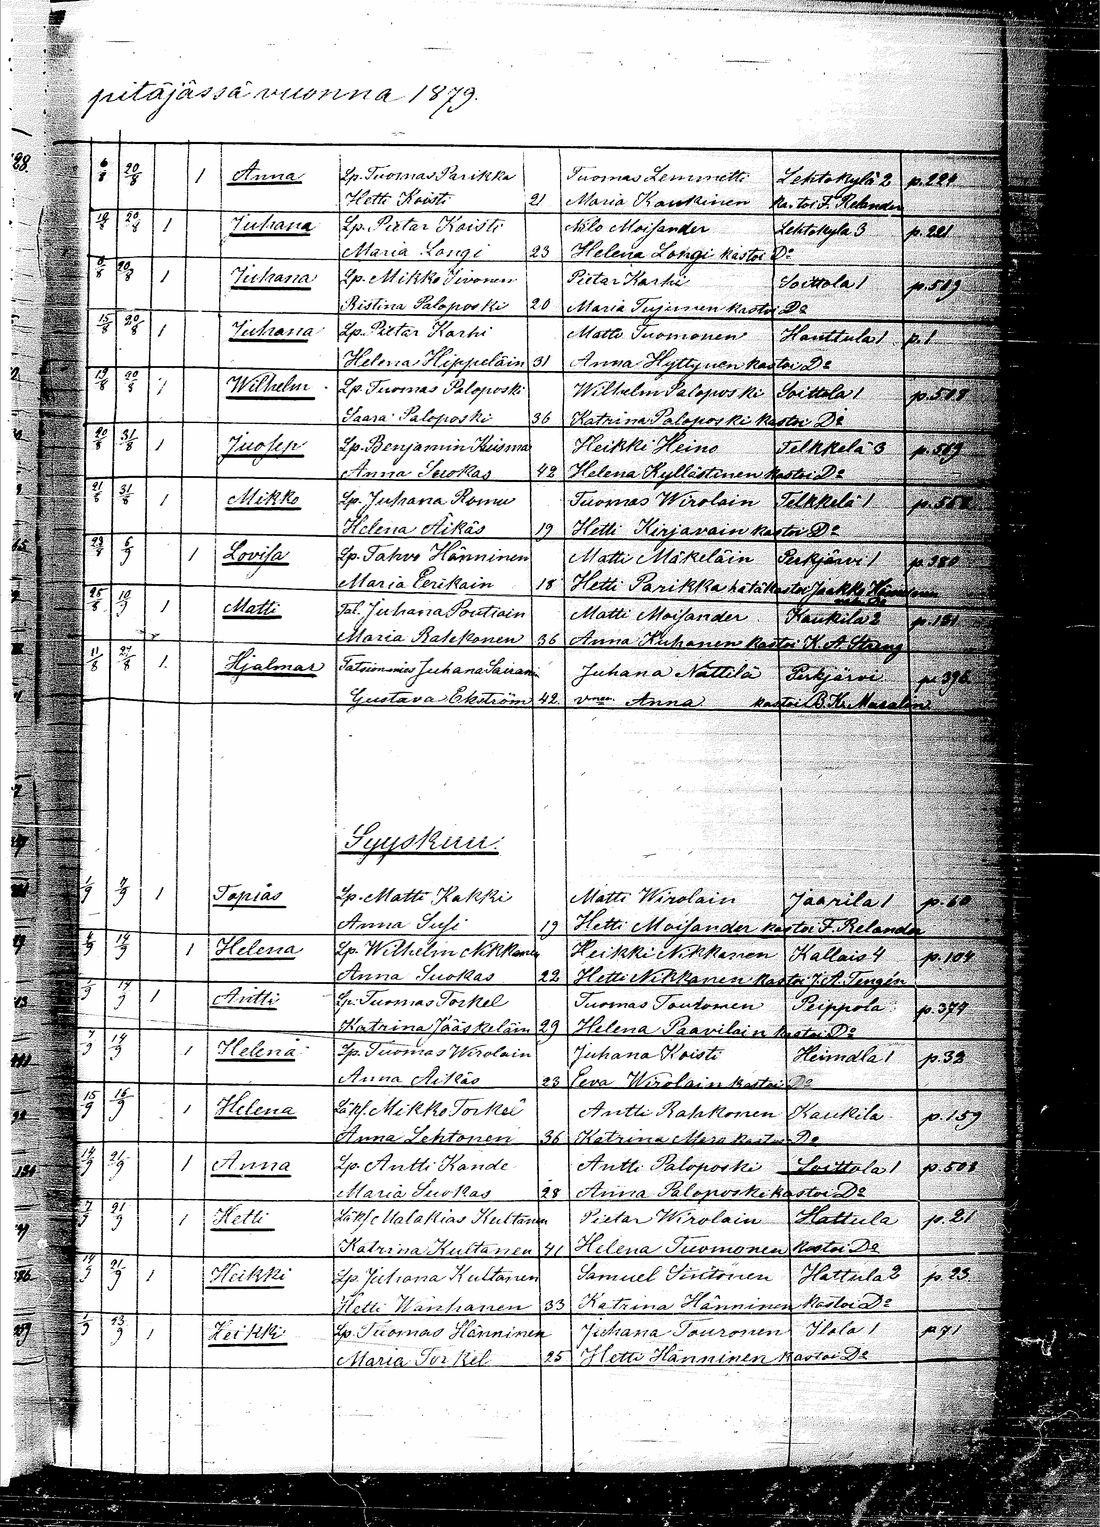 pitäjässä vuonna 1879.
6/8 20/8 1 Anna Lp. Tuomas Parikka Tuomas Lemmetti Lehtokylä 2 p. 224
Hetti Koisti 21 Maria Kaukinen kastoi F. Relander
20/8 1 Juhana Lp. Pietar Koisti Nilo Moisander Lehtokylä 3 p. 221
Maria Longi 23 Helena Longi kastoi Do
20/8 1 Juhana Lp. Mikko Iivonen Pietar Karhi Soittola 1 p. 509
Ristina Paloposki 20 Maria kastoi Do
15/8 20/8 1 Juhana Lp. Pietar Karhi Matti Tuomonen Hauttula 1 p. 1
Helena Hippeläin 31 Anna Hyttynen kastoi Do
19/8 20/8 1 Wilhelm Lp. Tuomas Paloposki Wilhelm Paloposki Soittola 1
Saara Paloposki 36 Katrina Paloposki kastoi Do
20/8 31/8 1 Juosep Lp. Benjamin Heikki Heino Telkkelä 3 p. 569
Anna Suokas 42 Helena Kyllästinen kastoi Do
21/8 31/8 1 Mikko Lp. Juhana Romu Tuomas Wirolain Telkkelä 1
Helena Äikäs 19 Hetti Kirjavain kastoi Do
23/8 6/9 1 Lovisa Lp. Tahvo Hänninen Matti Mäkeläin Perkjärvi 1 p. 380
Maria Eerikain 18 Hetti Parikka hätäkastoi Jaakko Hänninen
25/8 10/9 1 Matti Tal. Juhana Poutiain Matti Moisander Kaukila 2 p. 151
Maria Rahkonen 36 Anna Kuhanen kastoi K. A. Streng
11/8 27/8 1 Hjalmar Juhana Sairanen Juhana Nättilä Perkjärvi p. 396
Gustava Ekström 42 vmon Anna kastoi
Syyskuu.
1/9 7/9 1 Topias Lp. Matti Kakki Matti Wirolain Jaarila 1 p. 60
Anna Susi 19 Hetti Moisander kastoi F. Relander
4/9 14/9 1 Helena Lp. Wilhelm Nikkanen Heikki Nikkanen Kallais 4 p. 104
Anna Suokas 22 Hetti Nikkanen kastoi J. A. Tengén
14/9 1 Antti Lp. Tuomas Torkel Tuomas Toutomen Peippola p. 374
Katrina Jääskeläin 29 Helena Paavilain kastoi Do
7/9 14/9 1 Helena Lp. Tuomas Wirolain Juhana Koisti Heimala 1 p. 32
Anna Äikäs 23 Eeva Wirolain kastoi Do
15/9 16/9 1 Helena Mikko Torkel Antti Rahkonen Kaukila p. 159
Anna Lehtonen 36 Katrina kastoi Do
14/9 21/9 1 Anna Lp. Antti Kande Antti Paloposki Soittola 1 p. 508
Maria Suokas 28 Anna Paloposki kastoi Do
7/9 21/9 1 Hetti Malakias Kultanen Pietar Wirolain Hattula p. 21
Katrina Kultanen 41 Helena Tuomonen kastoi Do
14/9 21/9 1 Heikki Lp. Juhana Kultanen Samuel Sintonen Hattula 2 p. 23
Hetti Wanhanen 33 Katrina Hänninen kastoi Do
23/9 1 Heikki Lp. Tuomas Hänninen Juhana Touronen Ilola 1 p. 71
Maria Torkel 25 Hetti Hänninen kastoi Do